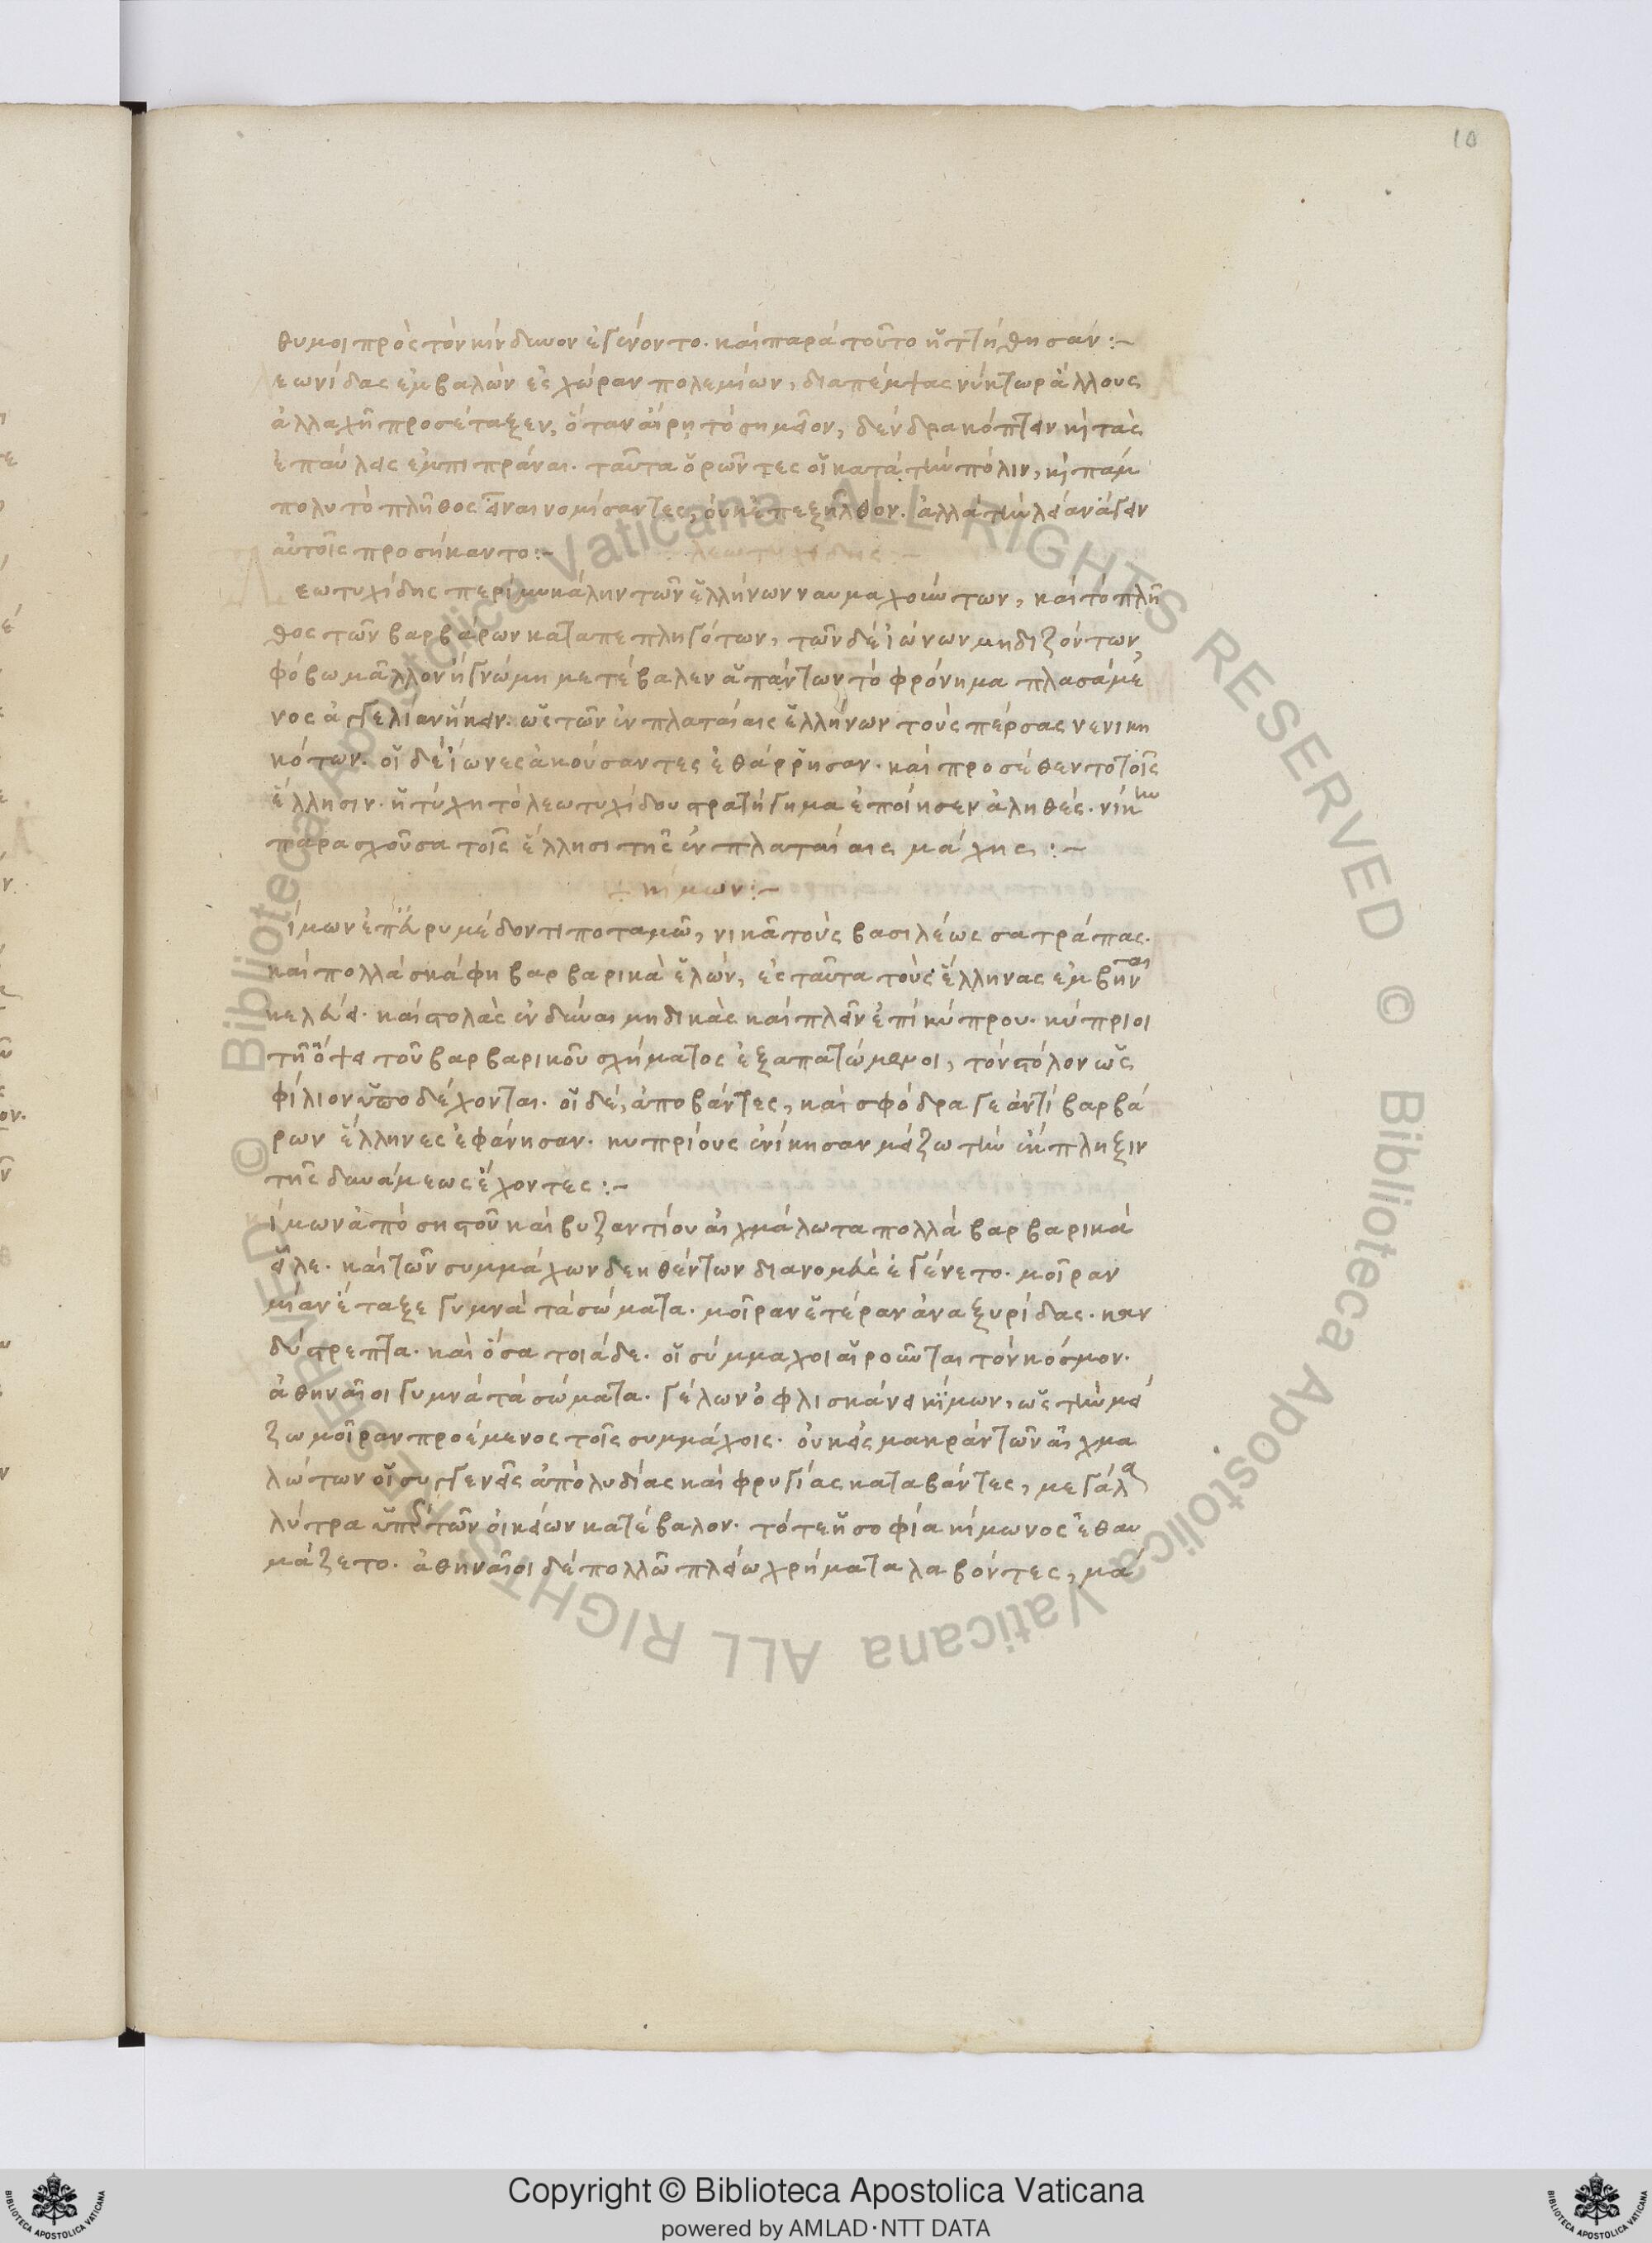 10
θυμοι πρὸς τὸν κίνδυνον ἐγένοντο· καὶ παρὰ τοῦτο ἡττήθησαν:~
εωνίδας ἐμβαλὼν εἰς χώραν πολεμίων, διαπέμψας νύκτωρ ἄλλους
ἀλλαχῆ προσέταξεν, ὅταν αἴρη τὸ σημεῖον, δένδρα κόπτειν κὶ τὰς
ἐπαύλεις ἐμπιπράναι· ταῦτα ὁρῶντες οἱ κατὰ τὴν πόλιν, κὶ πάμ
πολυ τὸ πλῆθος εἶναι νομίσαντες, οὐκ ἐπεξῆλθον· ἀλλὰ τὴν λείαν ἄγειν
αὐτοῖς προσήκαντο:~ λεωτυχίδης:~
εωτυχίδης περὶ μυκάλην τῶν ἑλλήνων ναυμαχούντων, καὶ τὸ πλῆ
θος τῶν βαρβάρων καταπεπληγότων, τῶν δὲ ἰώνων μηδιζόντων,
φόβω μᾶλλον ἢ γνώμη μετέβαλεν ἁπάντων τὸ φρόνημα πλασάμε
νος ἀγγελίαν ἥκειν· ὡς τῶν ἐν πλαταίαις ἑλλήνων τοὺς πέρσας νενικη
κότων· οἱ δὲ ἴωνες ἀκούσαντες ἐθάρρησαν· καὶ προσέθεντο τοῖς
ἕλλησιν· ἡ τύχη τὸ λεωτυχίδου στρατήγημα ἐποίησεν ἀληθές· νίκην
παρασχοῦσα τοῖς ἕλλησι τῆς ἐν πλαταίαις μάχης:~
κίμων:~
ίμων ἐπ' εὐρυμέδοντι ποταμῶ, νικᾶ τοὺς βασιλέως σατράπας·
καὶ πολλὰ σκάφη βαρβαρικὰ ἑλών, εἰς ταῦτα τοὺς ἕλληνας ἐμβῆναι
κελεύει· καὶ στολὰς ἐνδῦναι μηδικὰς καὶ πλεῖν ἐπὶ κύπρου· κύπριοι
τῆ ὄψει τοῦ βαρβαρικοῦ σχήματος ἐξαπατώμενοι, τὸν στόλον ὡς
φίλιον ὑποδέχονται· οἱ δὲ, ἀποβάντες, καὶ σφόδρα γε ἀντὶ βαρβά
ρων ἕλληνες ἐφάνησαν· κυπρίους ἐνίκησαν μείζω τὴν ἔκπληξιν
τῆς δυνάμεως ἔχοντες:~
ίμων ἀπὸ σηστοῦ καὶ βυζαντίου αἰχμάλωτα πολλὰ βαρβαρικὰ
εἷλε· καὶ τῶν συμμάχων δεηθέντων διανομεὺς ἐγένετο· μοῖραν
μίαν ἔταξε γυμνὰ τὰ σώματα· μοῖραν ἑτέραν ἀναξυρίδας· καν
δύς στρεπτὰ· καὶ ὅσα τοιάδε· οἱ σύμμαχοι αἱροῦνται τὸν κόσμον·
ἀθηναῖοι γυμνὰ τὰ σώματα· γέλων ὀφλισκάνει κίμων, ὡς τὴν μεί
ζω μοῖραν προέμενος τοῖς συμμάχοις· οὐκ εἰς μακρὰν τῶν αἰχμα
λώτων οἱ συγγενεῖς ἀπὸ λυδίας καὶ φρυγίας καταβάντες, μεγάλα
λύτρα ὑπὲρ τῶν οἰκείων κατέβαλον· τότε ἡ σοφία κίμωνος ἐθαυ
μάζετο· ἀθηναῖοι δὲ πολλῶ πλείω χρήματα λαβόντες, μά
© Biblioteca Apostolica Vaticana ALL RIGHTS RESERVED © Biblioteca Apostolica Vaticana ALL RIGHTS RESERVED
Copyright © Biblioteca Apostolica Vaticana
powered by AMLAD·NTT DATA
BIBLIOTECA APOSTOLICA VATICANA
BIBLIOTECA APOSTOLICA VATICANA